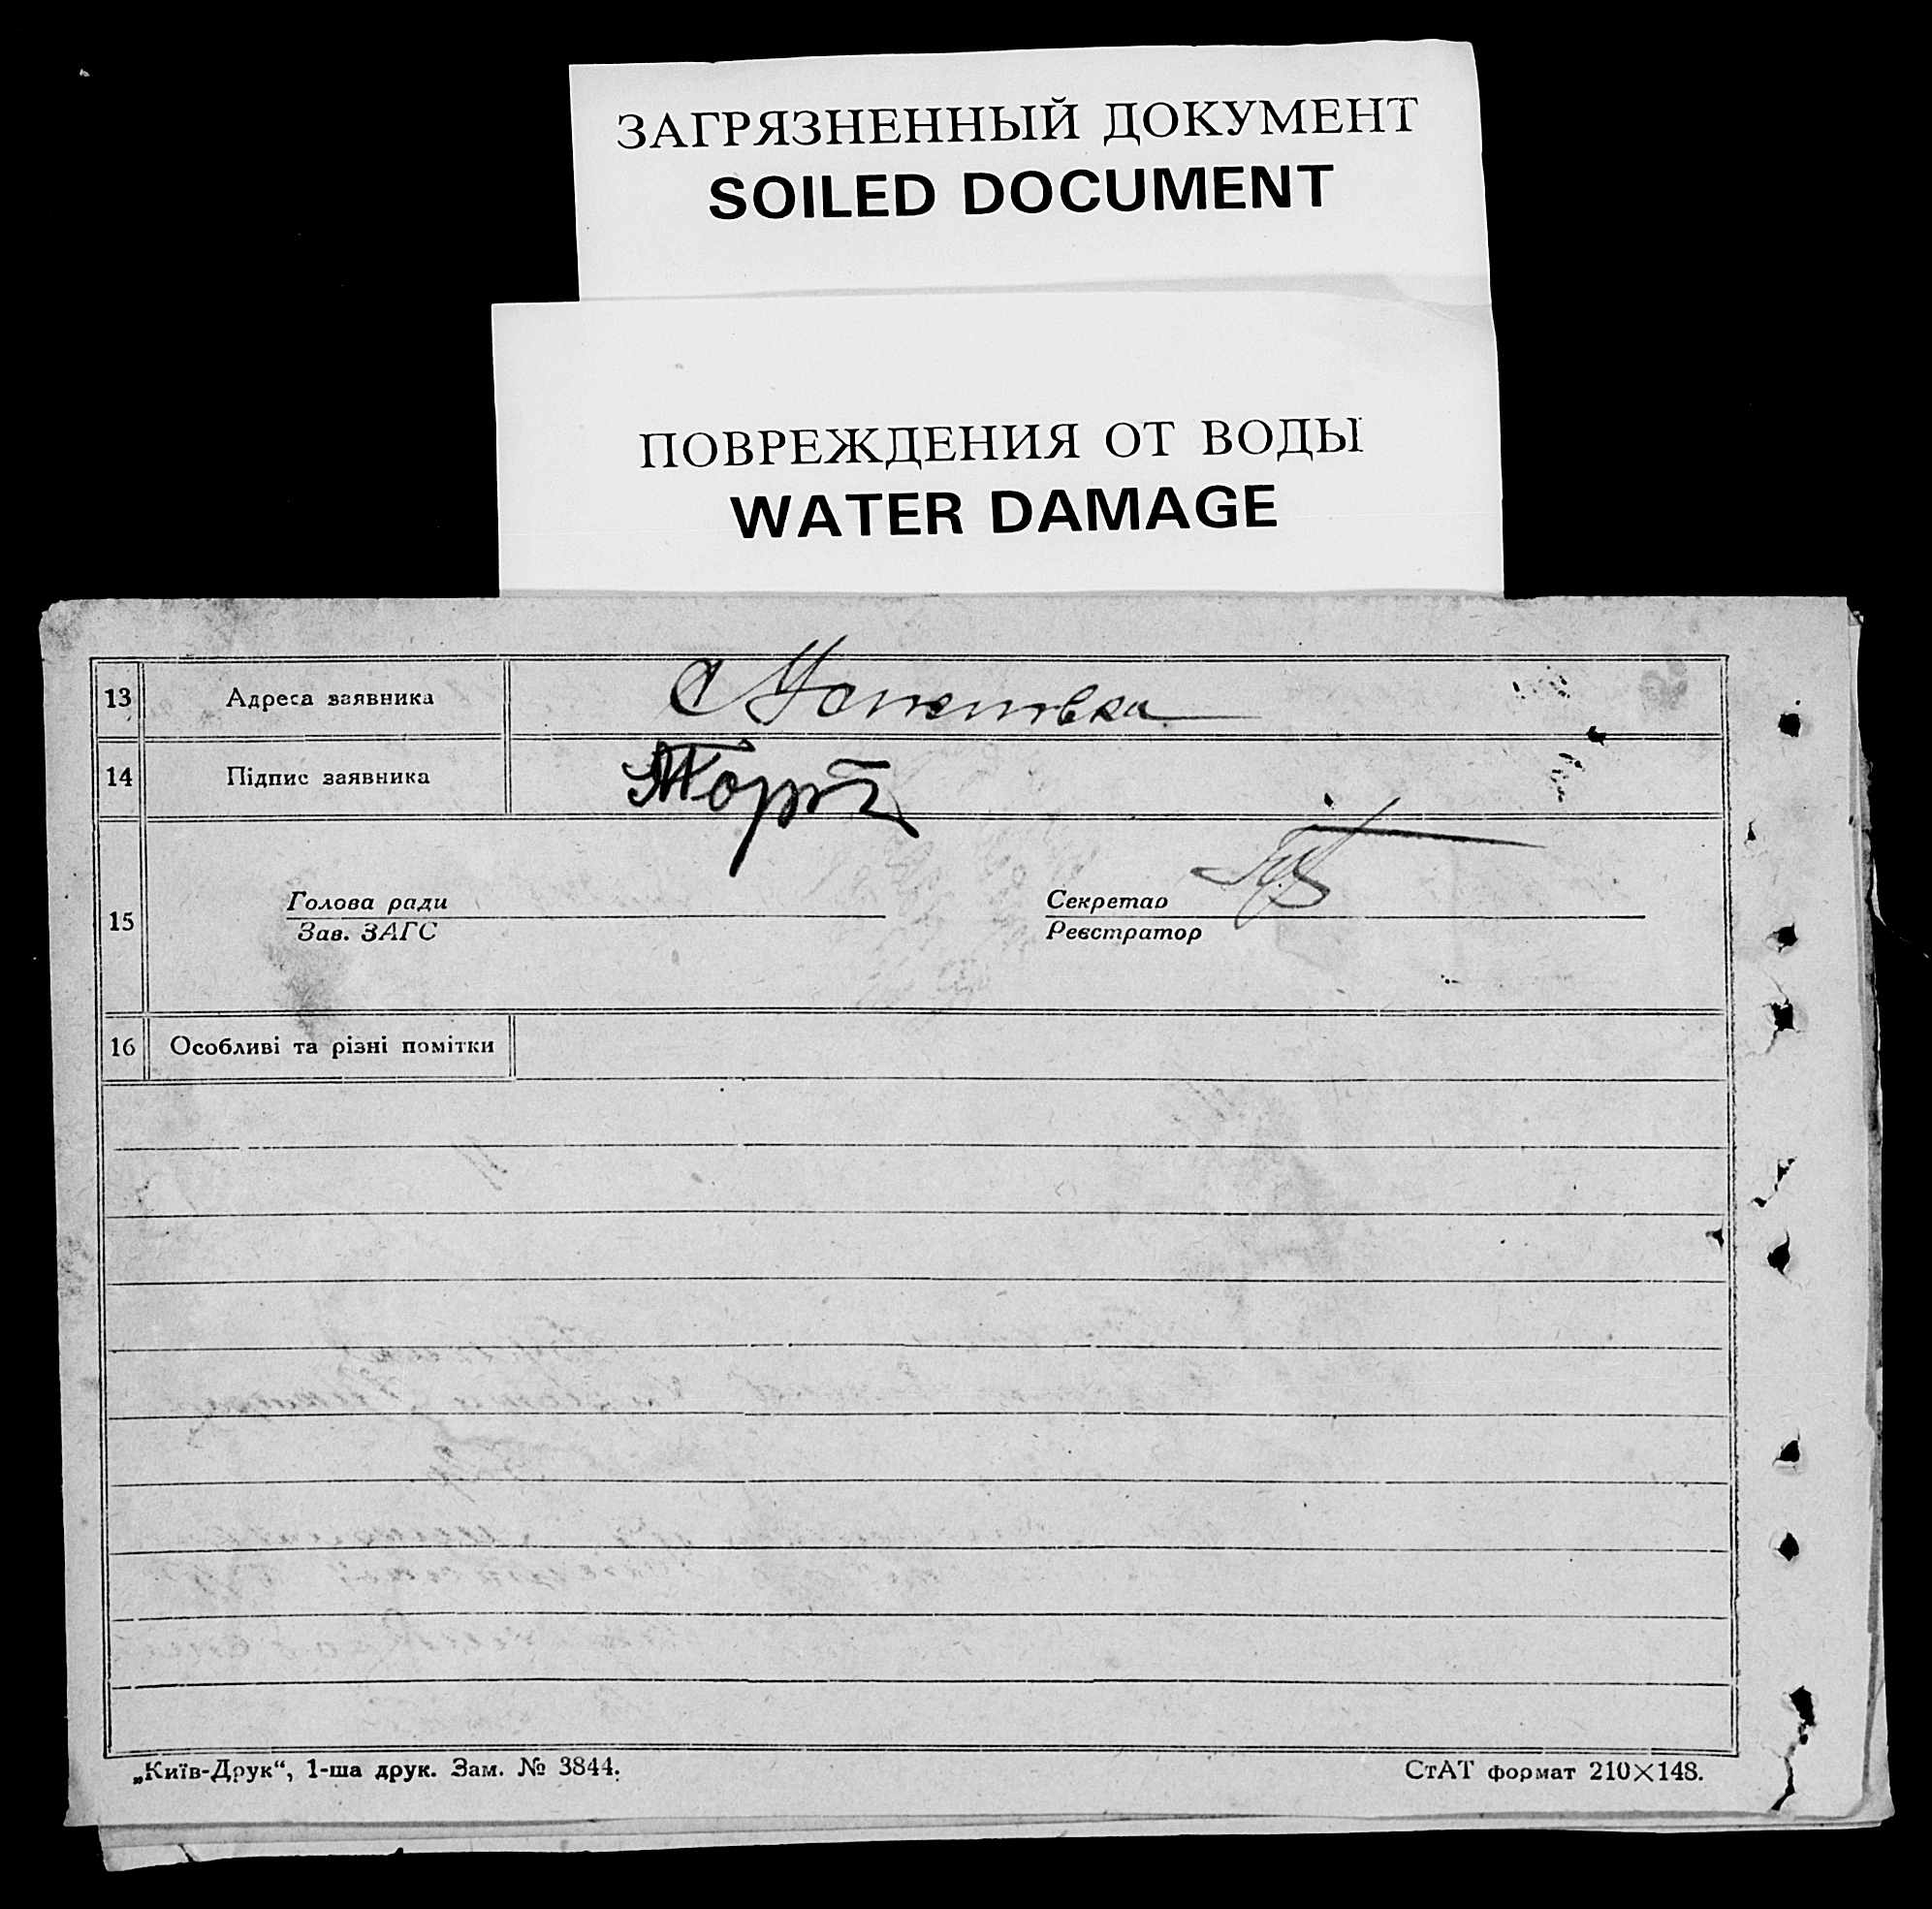 ЗАГРЯЗНЕННЫЙ ДОКУМЕНТ
SOILED DOCUMENT
ПОВРЕЖДЕНИЯ ОТ ВОДЫ
WATER DAMAGE
13 Адреса заявника
14 Підпис заявника
15 Голова ради Секретар
Зав. ЗАГС Реєстратор
16 Особливі та різні помітки
„Київ-Друк“, 1-ша друк. Зам. № 3844. СтАТ формат 210×148.